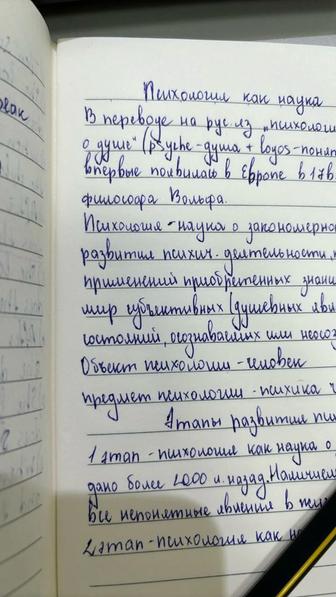 Психология как наука
В переводе на рус.яз „психологи
о душе" (psyche-душа + logos-понят
впервые появилась в Европе в 17в.
философа Вольфа.
Психология-наука о закономерно
развития психич. деятельности,
применений приобретенных знани
мир субъективных (душевных явл
состояний, осознаваемых или неосоз
Объект психологии-человек
предмет психологии-психика ч
Этапы развития пси
1 этап - психология как наука о
дано более 2000 л. назад. Наличием
все непонятные явления в
2 этап-психология как